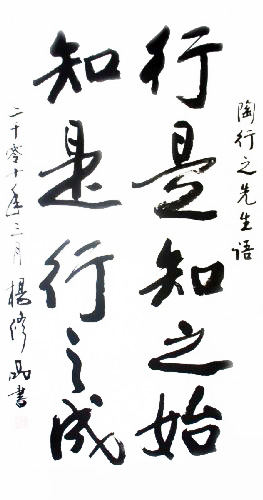 陶行之先生语
行是知之始
知是行之成
二千零十年三月 楊修 書